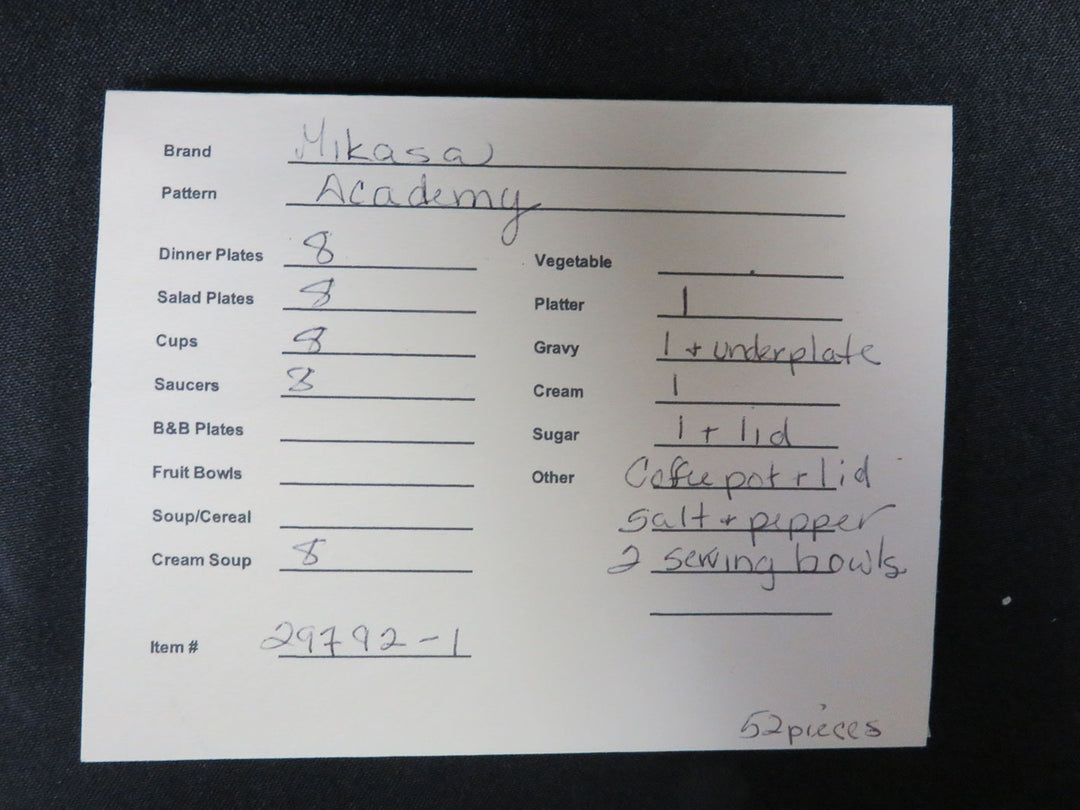 Brand Mikasa
Pattern Academy
Dinner Plates 8
Salad Plates 8
Cups 8
Saucers 8
B&B Plates
Fruit Bowls
Soup/Cereal
Cream Soup 8
Item # 29792-1
Vegetable
Platter 1
Gravy 1 + underplate
Cream 1
Sugar 1 + lid
Other Coffee pot + lid
salt + pepper
2 serving bowls
52 pieces